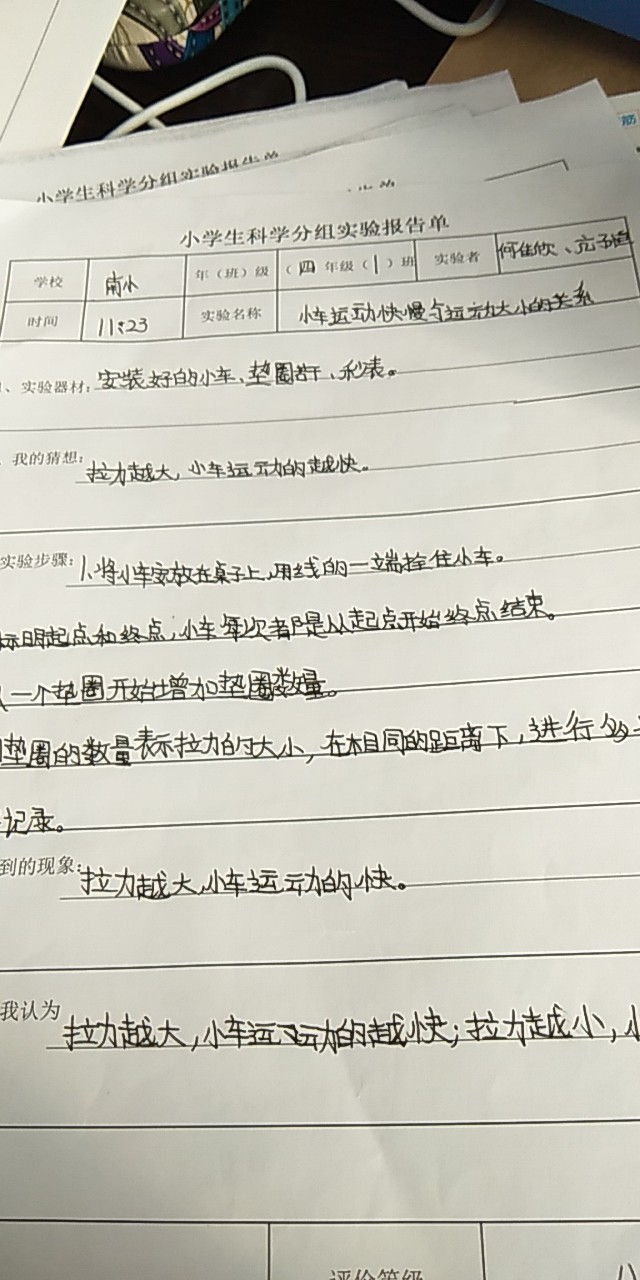 小学生科学分组实验报告单
小学生科学分组实验报告单
学校 南小 年（班）级 （四 年级（1）班 实验者 何佳欣、
时间 11:23 实验名称 小车运动快慢与运动大小的关系
、实验器材：安装好的小车、垫圈若干、秒表。
我的猜想：拉力越大，小车运动的越快。
实验步骤：1、将小车安放在桌子上，用线的一端拴住小车。
标明起点和终点，小车每次都是从起点开始终点结束。
一个垫圈开始增加垫圈数量。
垫圈的数量表示拉力的大小，在相同的距离下，进行
记录。
到的现象：拉力越大，小车运动的快。
我认为 拉力越大，小车运动的越快；拉力越小，小
评价等级